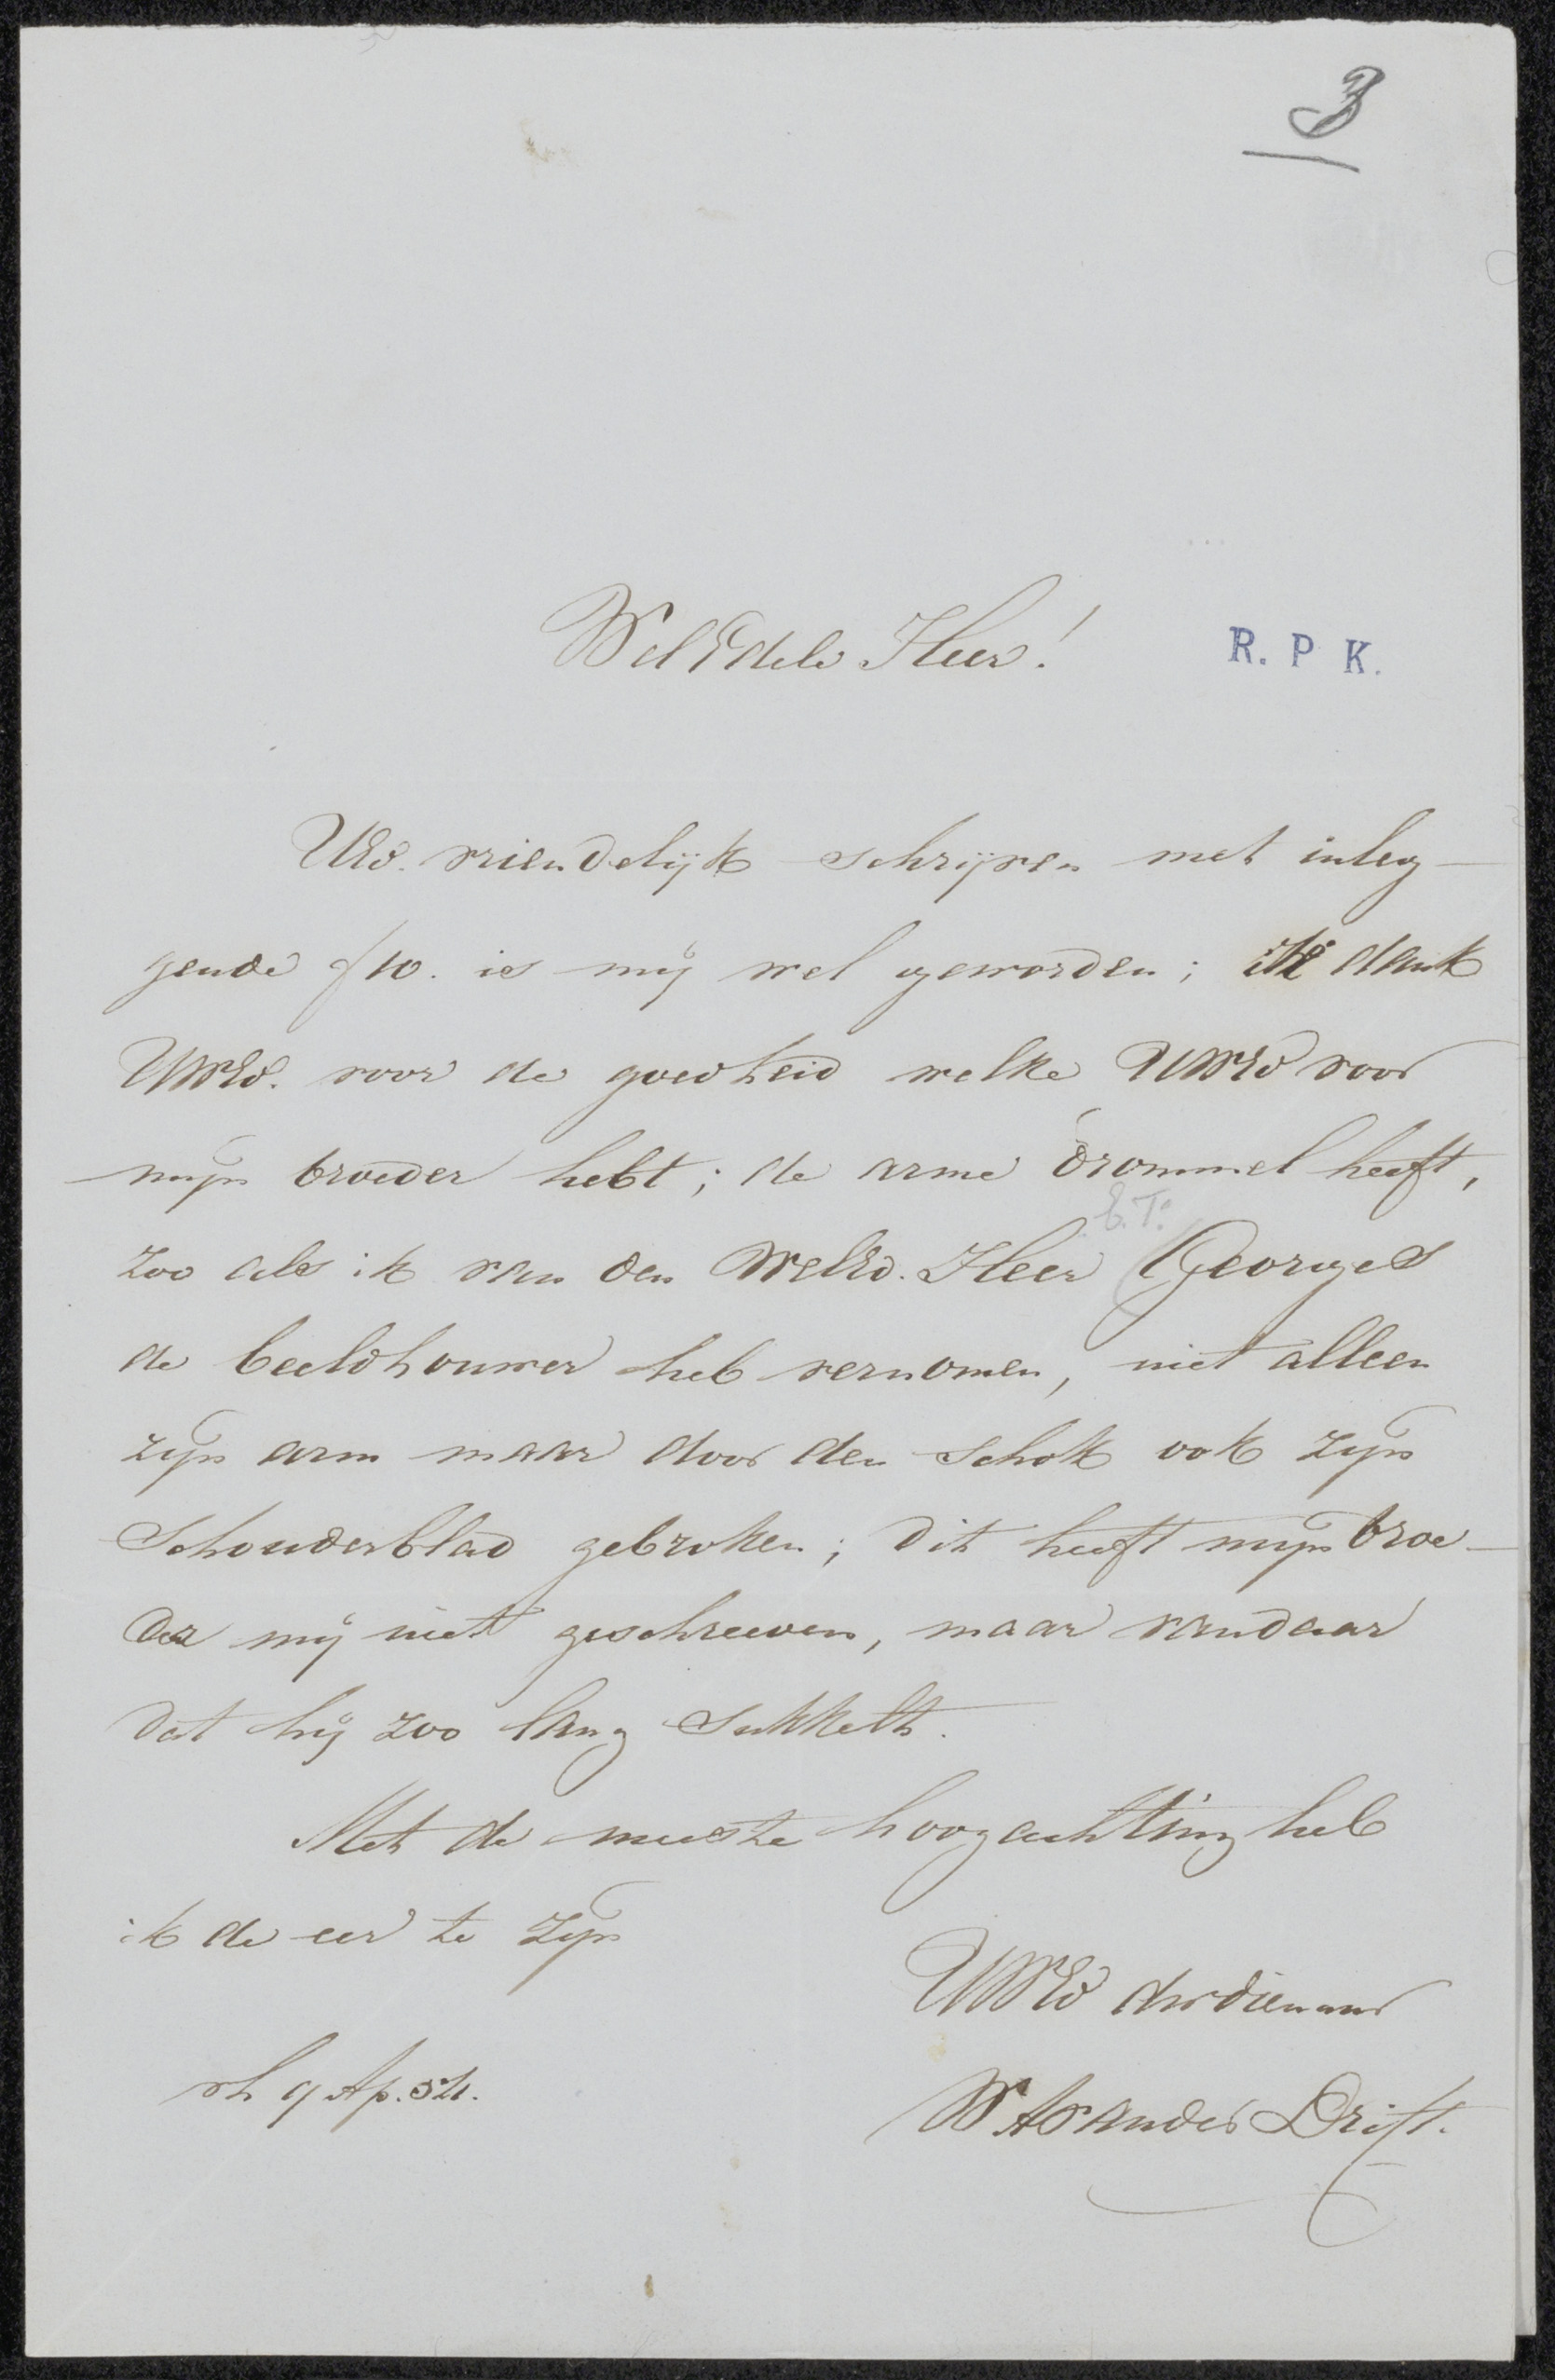 3
WelEdele Heer!
R. P K.
UEd. vriendelijk schrijven met inleg-
gende f10. is mij wel geworden; ik dank
UWEd. voor de goedheid welke UWEd voor
mijn broeder hebt; de arme drommel heeft,
E.T.
zoo als ik van den WelEd. Heer Georges
de beeldhouwer heb vernomen, niet alleen
zijn arm maar door den schok ook zijn
Schouderblad gebroken; dit heeft mijn broe-
der mij niet geschreeven, maar vandaar
dat hij zoo lang Sukkelt.
Met de meeste hoogachting heb
ik de eer te zijn
UWEd dwdienaar
W A van der Drift.
9 Ap. 54.